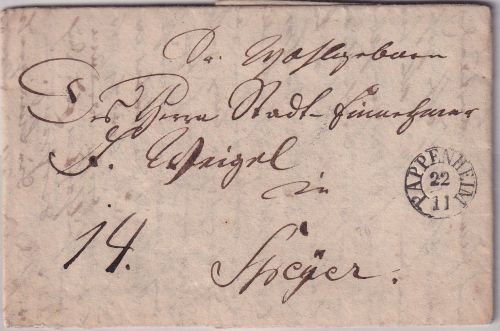 Sr. Wohlgeboren
Des Herrn Stadt-Einnehmer
F. Weigel
in
Speÿer.
14.
PAPPENHEIM
22
11